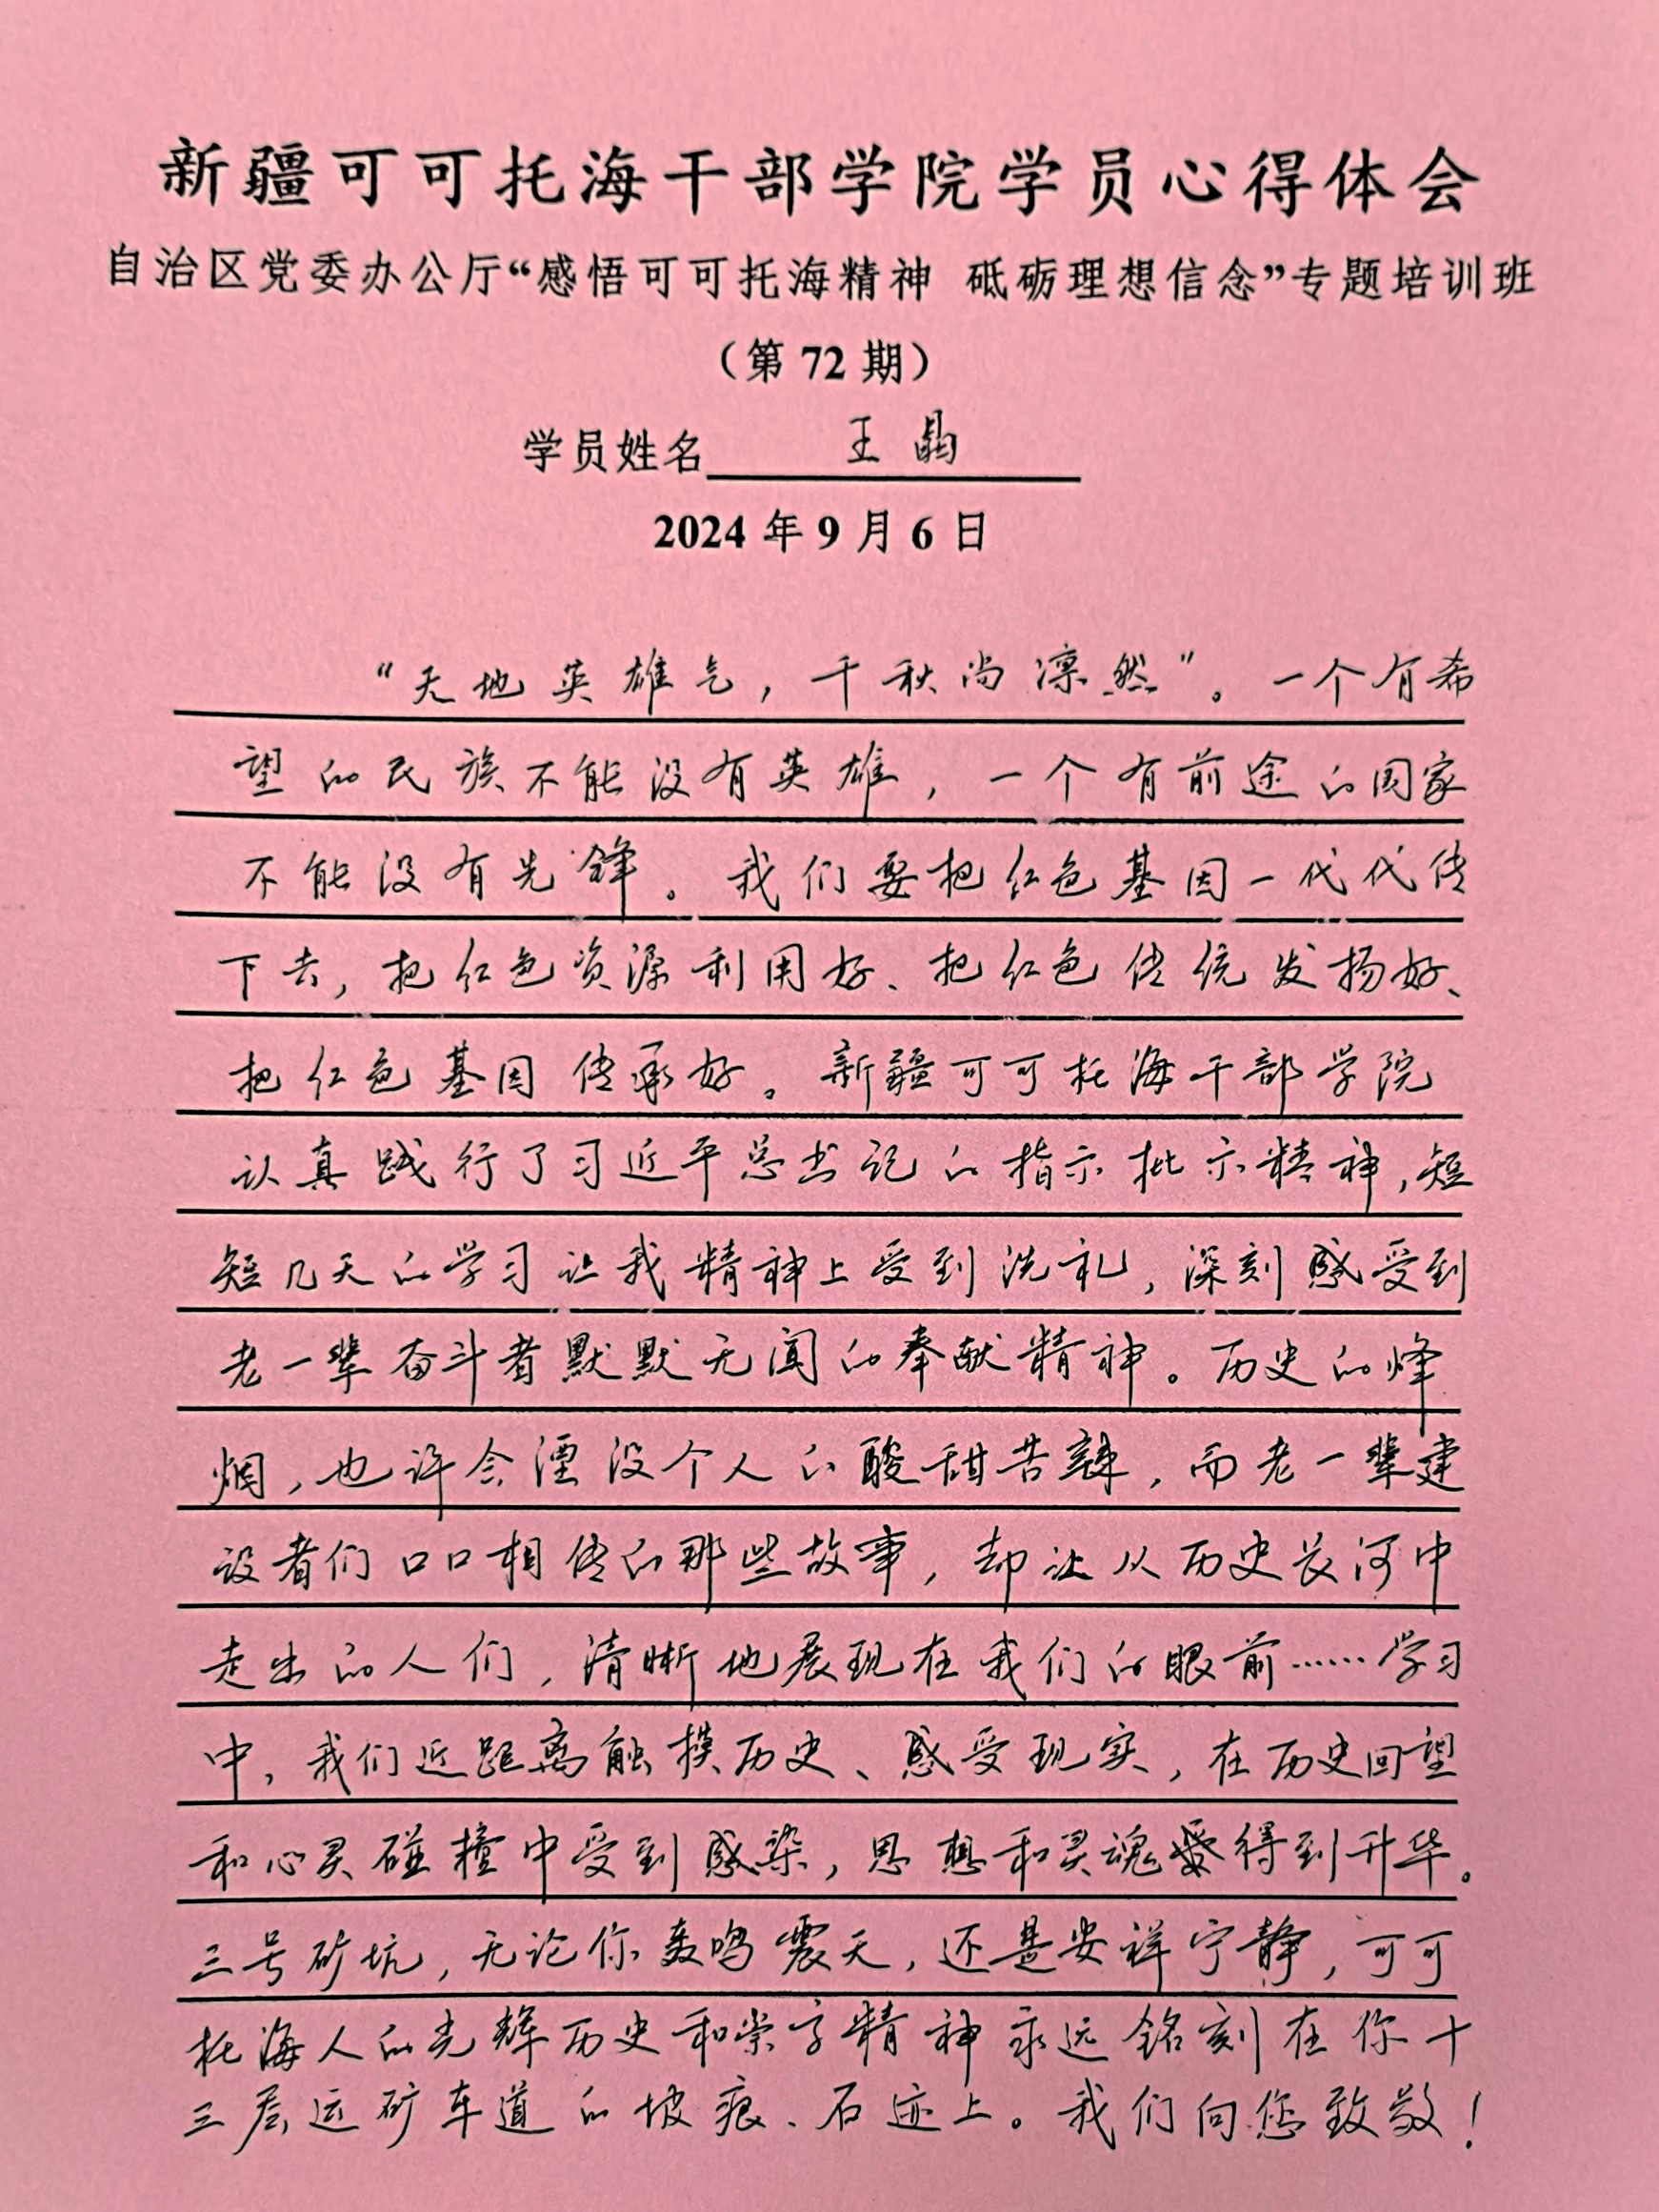 新疆可可托海干部学院学员心得体会
自治区党委办公厅“感悟可可托海精神 砥砺理想信念”专题培训班
（第 72 期）
学员姓名 王晶
2024 年 9 月 6 日
“天地英雄气，千秋尚凛然”。一个有希
望的民族不能没有英雄，一个有前途的国家
不能没有先锋。我们要把红色基因一代代传
下去，把红色资源利用好、把红色传统发扬好、
把红色基因传承好。新疆可可托海干部学院
认真践行了习近平总书记的指示批示精神，短
短几天的学习让我精神上受到洗礼，深刻感受到
老一辈奋斗者默默无闻的奉献精神。历史的烽
烟，也许会湮没个人的酸甜苦辣，而老一辈建
设者们口口相传的那些故事，却让从历史长河中
走出的人们，清晰地展现在我们的眼前……学习
中，我们近距离触摸历史、感受现实，在历史回望
和心灵碰撞中受到感染，思想和灵魂得到升华。
三号矿坑，无论你轰鸣震天，还是安祥宁静，可可
托海人的光辉历史和崇高精神永远铭刻在你十
三层运矿车道的坡痕、石迹上。我们向您致敬！